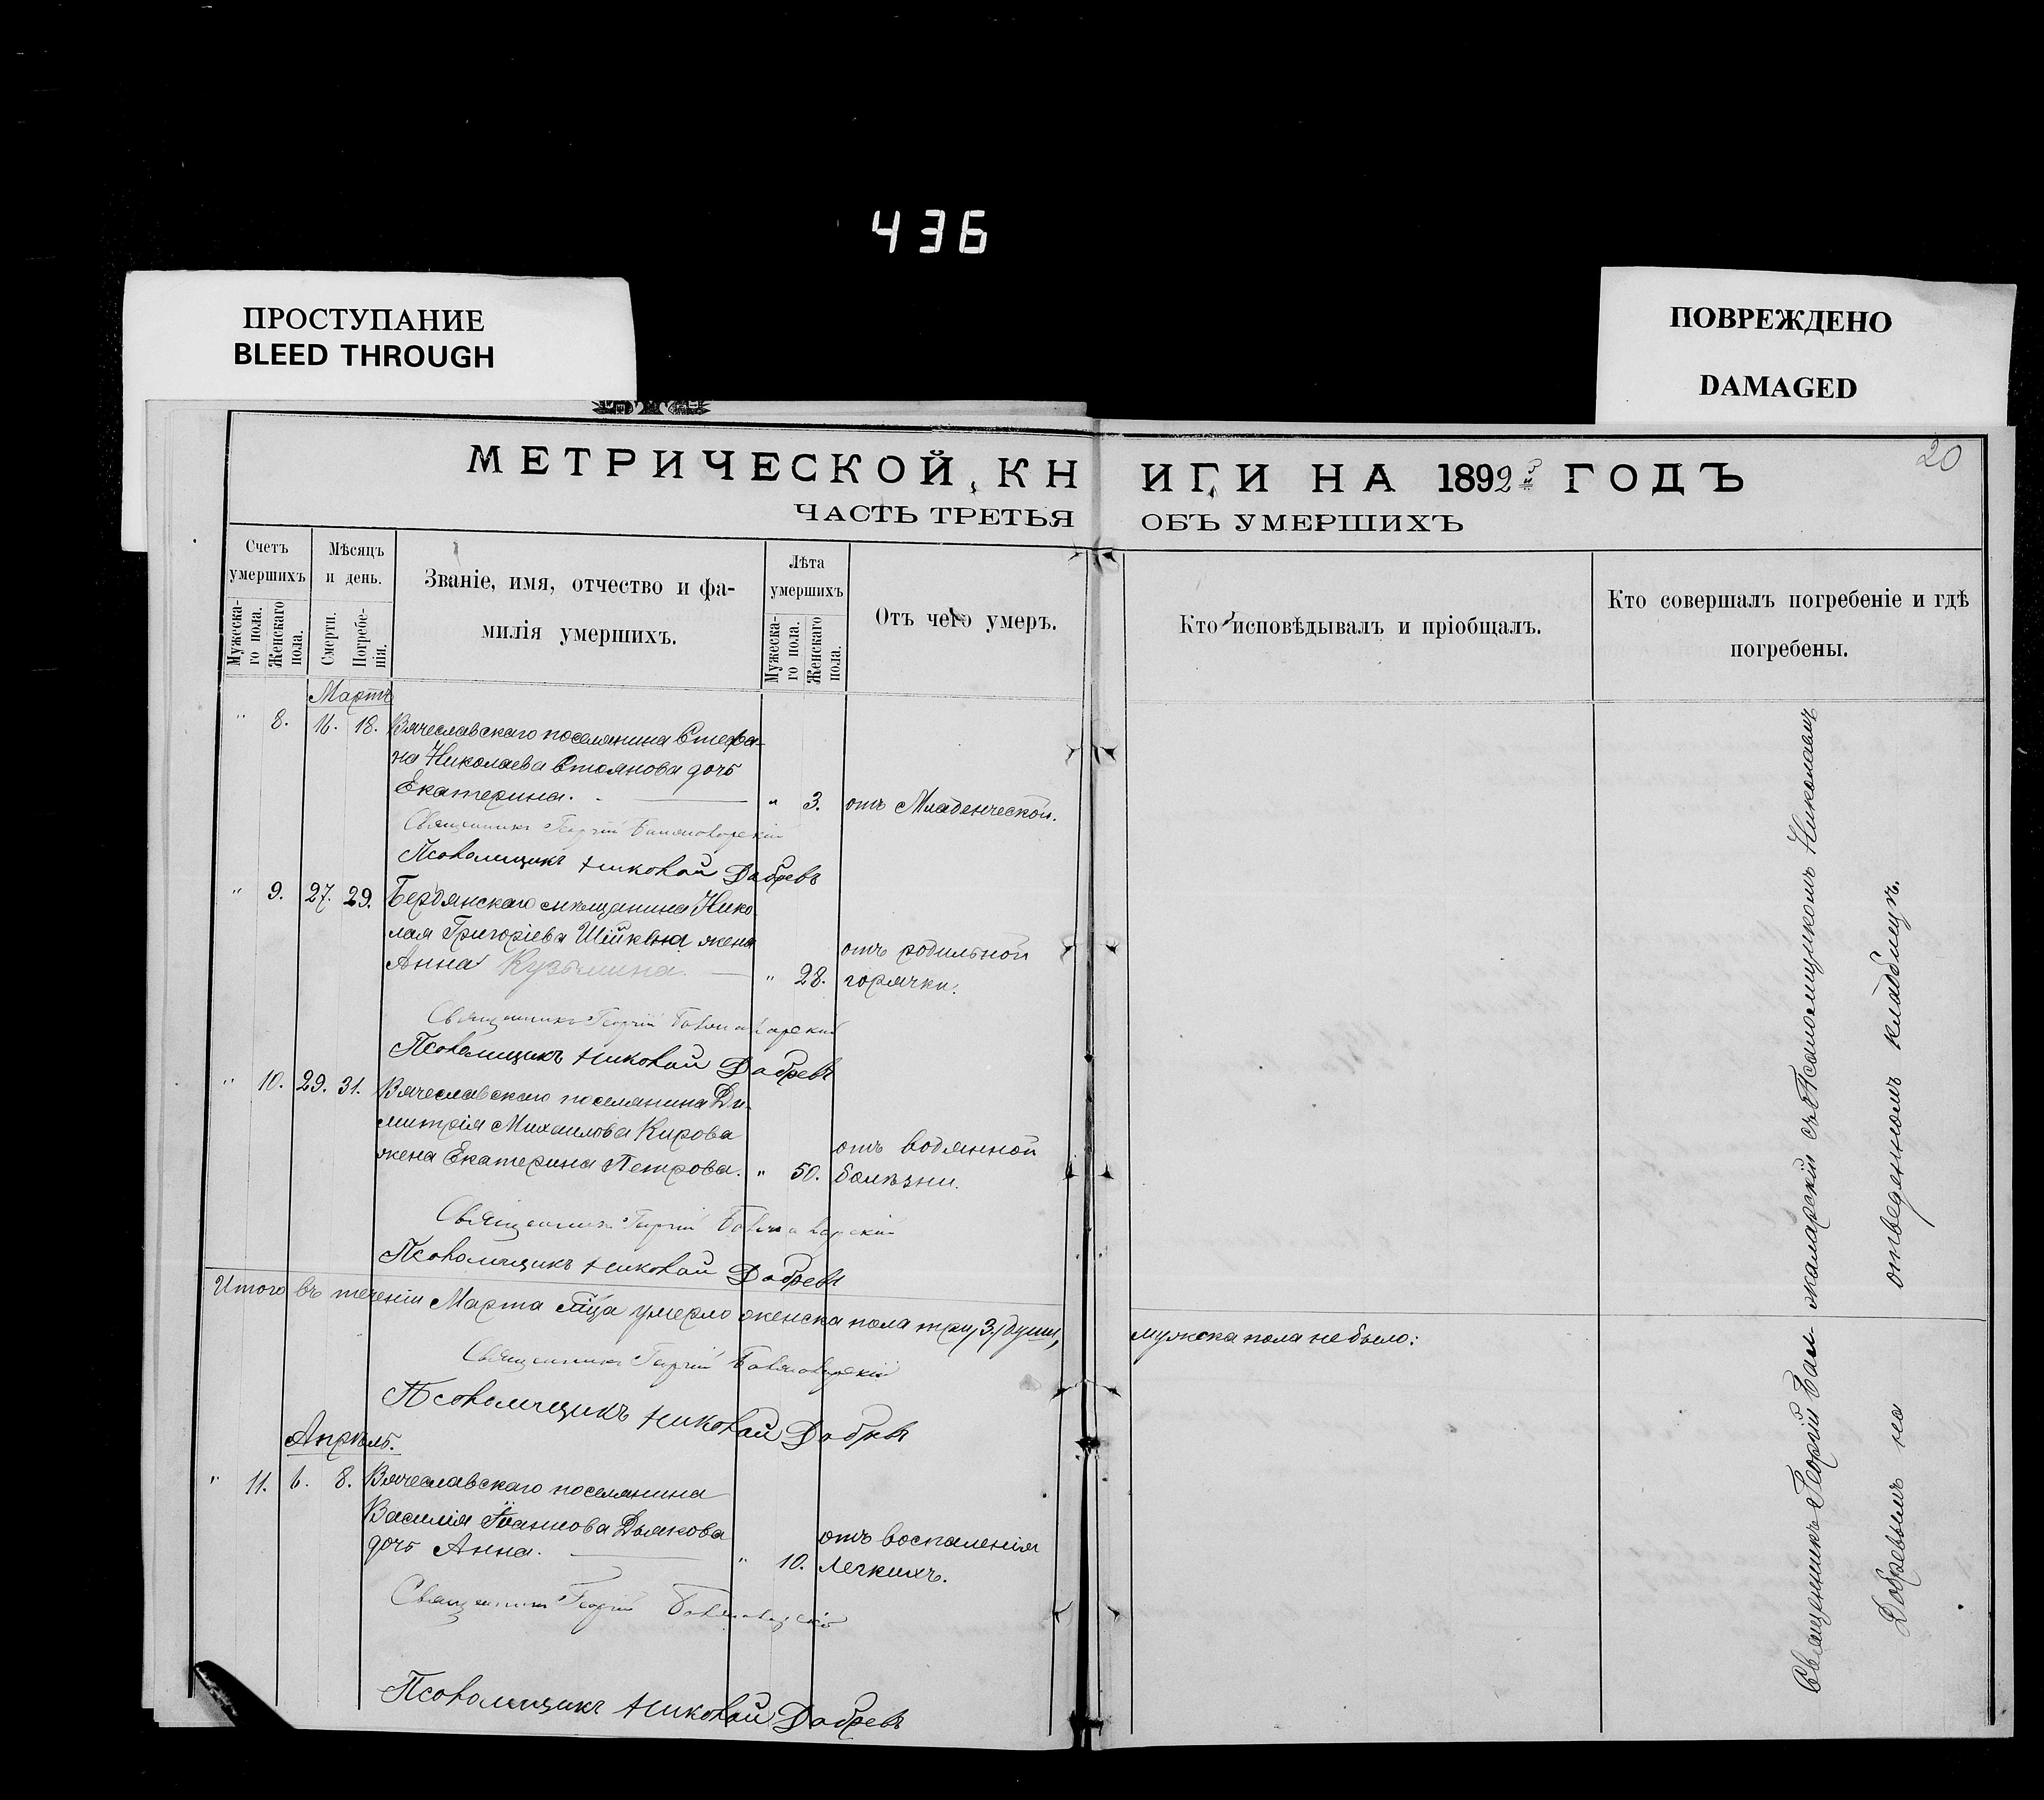 436
ПРОСТУПАНИЕ
BLEED THROUGH
ПОВРЕЖДЕНО
DAMAGED
20
МЕТРИЧЕСКОЙ КНИГИ НА 1892й ГОДЪ
ЧАСТЬ ТРЕТЬЯ ОБЪ УМЕРШИХЪ
Счетъ умершихъ
Мужеска-го пола.
Женскаго пола.
Мѣсяцъ и день.
Смерти.
Погребе-нія.
Званіе, имя, отчество и фа-
милія умершихъ.
Лѣта умершихъ
Мужеска-го пола.
Женскаго пола.
Отъ чего умеръ.
Кто исповѣдывалъ и пріобщалъ.
Кто совершалъ погребеніе и гдѣ
погребены.
Мартъ
" 8. 16. 18. Вячеславскаго поселянина Стефа-
на Николаева Стоянова дочь
Екатерина. " 3. отъ Младенческой.
Священникъ Георгій
Псаломщикъ Николай Добревъ
" 9. 27. 29. Бердянскаго мѣщанина Нико
лая Григоріева жена
Анна Кузьмина. " 28. отъ родильной
горячки.
Священникъ Георгій
Псаломщикъ Николай Добревъ
" 10. 29. 31. Вячеславскаго поселянина Ди-
митрія Михаилова Кирова
жена Екатерина Петрова. " 50. отъ водянной
болѣзни.
Священникъ Георгій
Псаломщикъ Николай Добревъ
Итого въ теченіи Марта м͠ца умерло женска пола три, 3, души, мужска пола не было:
Священникъ Георгій
Псаломщикъ Николай Добревъ
Апрѣль.
" 11. 6. 8. Вячеславскаго поселянина
Василія Іоаннова Дьякова
дочь Анна. " 10. отъ воспаленія
легкихъ.
Священникъ Георгій
Псаломщикъ Николай Добревъ
Священникъ Георгій съ Псаломщикомъ Николаемъ
Добревымъ на отведенномъ кладбищѣ.